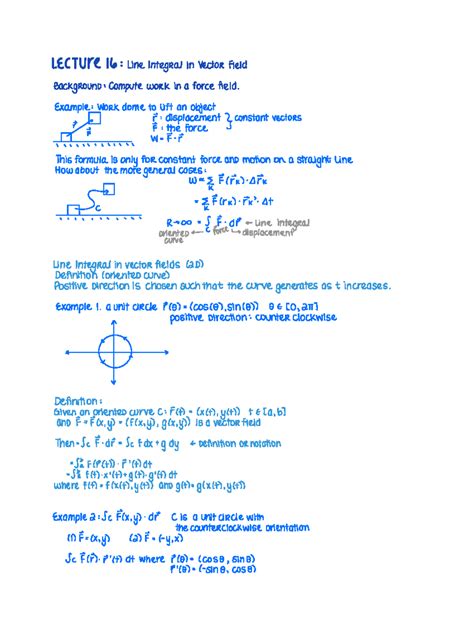 LECTURE 16: Line Integral in Vector Field
Background: Compute work in a force field.
Example: Work done to lift an object
r⃗: displacement } constant vectors
F⃗: the force
W = F⃗ · r⃗
This formula is only for constant force and motion on a straight line
How about the more general cases:
W ≈ Σ_K F⃗(r⃗_K) · Δr⃗_K
= Σ_K F⃗(r_K) · r⃗_K' · Δt
C
R→∞ = ∫_C F⃗ · dr⃗ ← Line Integral
oriented curve ← force ↳ displacement
Line Integral in vector fields (2D)
Definition (oriented curve)
Positive direction is chosen such that the curve generates as t increases.
Example 1. a unit circle r⃗(θ) = (cos(θ), sin(θ)) θ ∈ [0, 2π]
positive direction: counter clockwise
Definition:
Given an oriented curve C: r⃗(t) = (x(t), y(t)) t ∈ [a, b]
and F⃗ = F⃗(x,y) = (f(x,y), g(x,y)) is a vector field
Then = ∫_C F⃗ · dr⃗ = ∫_C f dx + g dy ← definition or notation
= ∫_a^b F(r⃗(t)) · r⃗'(t) dt
= ∫_a^b f(t) · x'(t) + g(t) · y'(t) dt
where f(t) = f(x(t), y(t)) and g(t) = g(x(t), y(t))
Example 2: ∫_C F⃗(x,y) · dr⃗ C is a unit circle with
the counterclockwise orientation
(1) F⃗ = (x,y) (2) F⃗ = (-y,x)
∫_C F⃗(r⃗) · r⃗'(t) dt where r⃗(θ) = (cos θ, sin θ)
r⃗'(θ) = (-sin θ, cos θ)